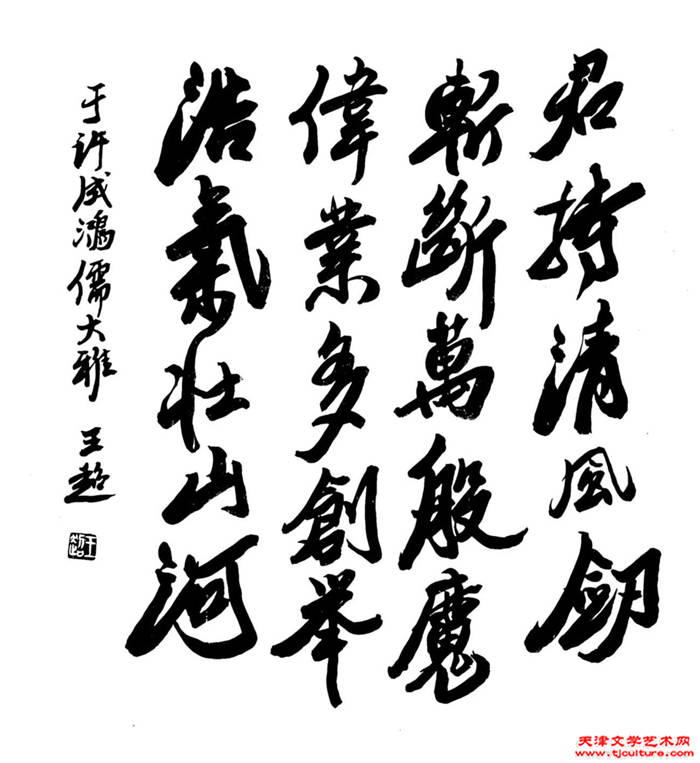 君持清風劒
斬斷萬般魔
偉業多創举
浩氣壯山河
于许成鴻儒大雅 王超
天津文学艺术网
www.tjculture.com